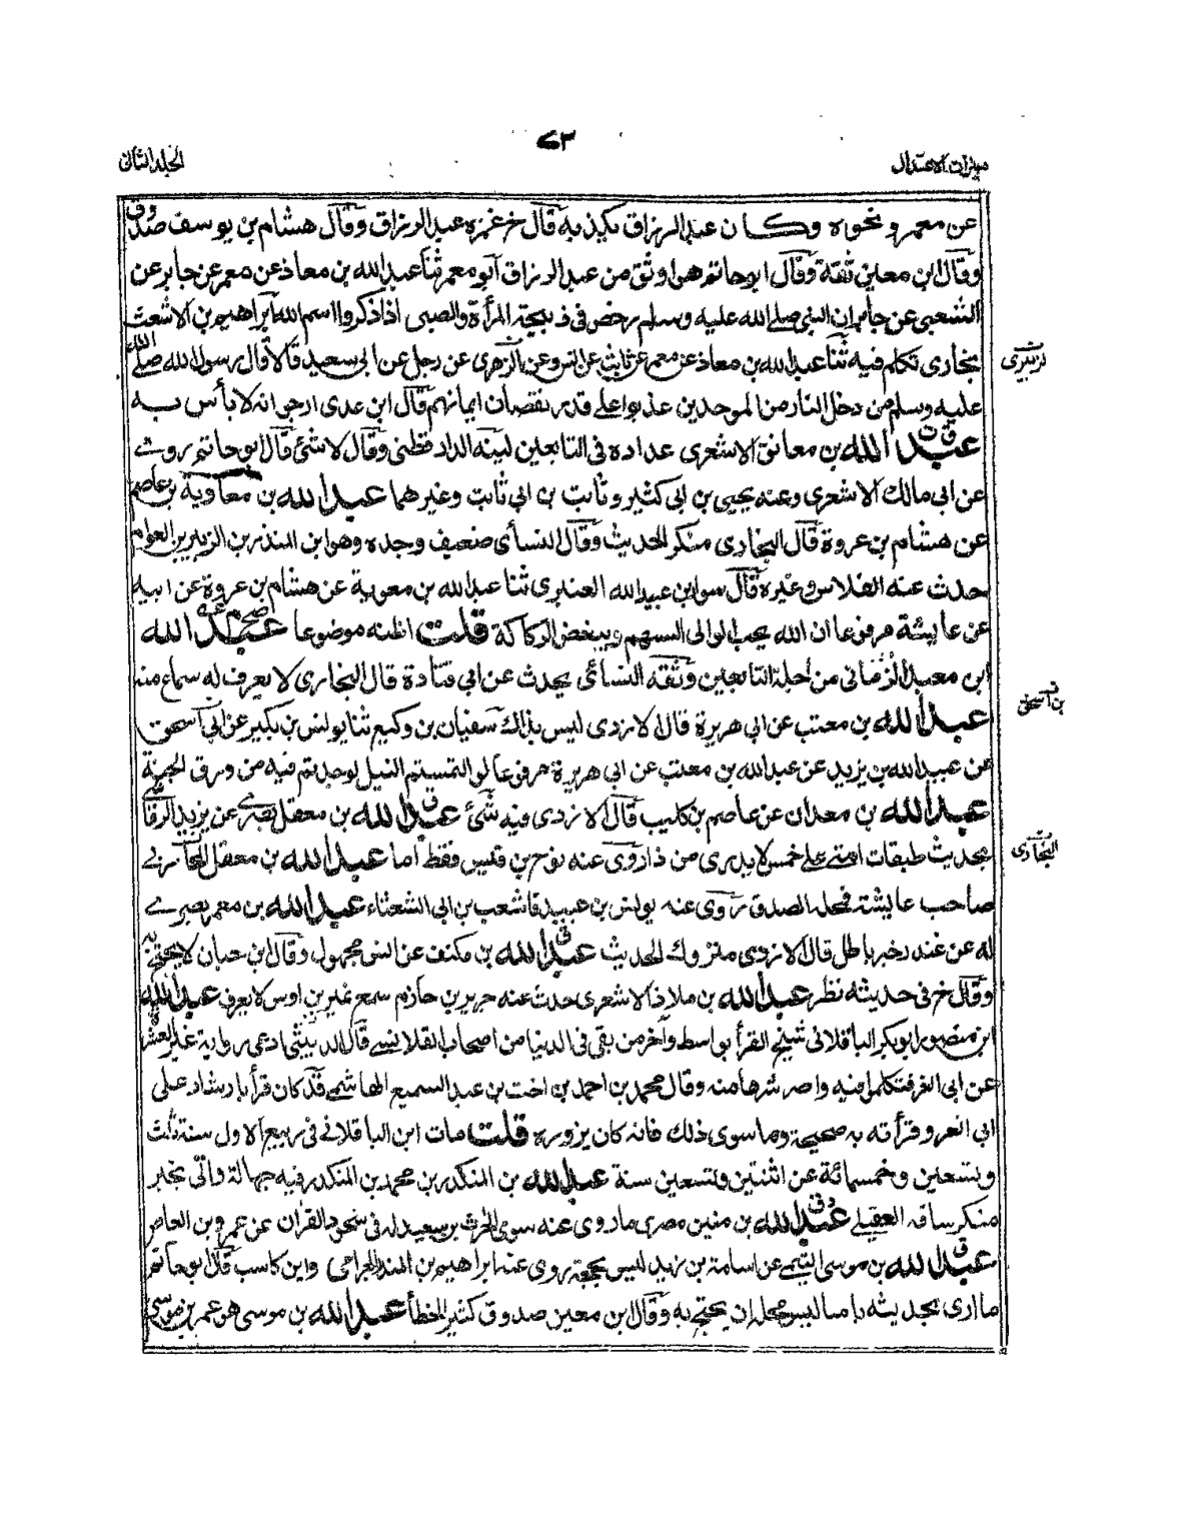 ٧٣
ميزان الاعتدال
المجلد الثاني
عن معمر و نحوه وكان عبد الرزاق يكذبه قال خ غمزه عبد الرزاق وقال هشام بن يوسف صدوق
وقال ابن معين ثقة وقال ابو حاتم هو اوثق من عبد الرزاق ابو معمر ثنا عبد الله بن معاذ عن معمر عن جابر عن
الشعبي عن جابر ان النبي صلے الله عليه وسلم رخص في ذبيحة المرأة والصبي اذا ذكروا اسم الله ابراهيم بن الاشعث
بخاري تكلم فيه ثنا عبد الله بن معاذ عن معمر عن ثابث عن انس وعن الزهري عن رجل عن ابي سعيد قالا قال رسول الله صلے الله
عليه وسلم من دخل النار من الموحدين عذبوا علے قدر نقصان ايمانهم قال ابن عدي ارجو انه لا بأس به
عبد الله بن معانق الاشعري عداده في التابعين لينه الدارقطني وقال لا شئ قال ابو حاتم روے
عن ابي مالك الاشعري وعنه يحيى بن ابي كثير وثابت بن ابي ثابت وغيرهما عبد الله بن معاوية بن عاصم
عن هشام بن عروة قال البخاري منكر الحديث وقال النسأي ضعيف وجده وهو ابن المنذر بن الزبير بن العوام
حدث عنه الفلاس وغيره قال سوار بن عبيد الله العنبري ثنا عبد الله بن معوية عن هشام بن عروة عن ابيه
عن عايشة مرفوعا ان الله يحب الوالي السهم ويبغض الركاكة قلت اظنه موضوعا صح عبد الله
ابن معبد الزماني من اجلة التابعين وثقه النسائي يحدث عن ابي قتادة قال البخاري لا يعرف له سماع منه
عبد الله بن معتب عن ابي هريرة قال الازدي ليس بذاك سفيان بن وكيع ثنا يونس بن بكير عن ابي اسحق
عن عبيد الله بن يزيد عن عبد الله بن معتب عن ابي هريرة مرفوعا لو التمستم النيل لوجدتم فيه من ورق الجنة
عبد الله بن معدان عن عاصم بن كليب قال الازدي فيه شئ عبد الله بن معقل بصرے عن يزيد الرقاشي
بحديث طبقات امتے علے خمس لا يدرى من ذا روى عنه نوح بن قيس فقط اما عبد الله بن معقل المحاربے
صاحب عايشة فمحله الصدق روى عنه يونس بن عبيد واشعث بن ابي الشعثاء عبد الله بن معمر بصرے
له عن غندر خبر باطل قال الازدي متروك الحديث عبد الله بن مكنف عن انس مجهول وقال ابن حبان لا يحتج به
وقال خ في حديثه نظر عبد الله بن ملاذ الاشعري حدث عنه جرير بن حازم سمع نمير بن اوس لا يعرف عبد الله
ابن منصور ابو بكر الباقلاني شيخ القرأ بواسط وآخر من بقي في الدنيا من اصحاب القلانسے قال الدبيثي ادعى رواية غير العشر
عن ابي العز فتكلموا فيه واصر شرها منه وقال محمد بن احمد بن اخت بن عبد السميع الهاشمے قد كان قرأ بارشاد على
ابي العز وقرأته به صحيحة وما سوى ذلك فانه كان يزوره قلت مات ابن الباقلانے في ربيع الاول سنة ثلث
وتسعين وخمسمائة عن اثنتين وتسعين سنة عبد الله بن المنكدر بن محمد بن المنكدر فيه جهالة واتى بخبر
منكر ساقه العقيلے عبد الله بن منين مصري ما روى عنه سوى الحرث بن سعيد له في سجود القرأن عن عمرو بن العاص
عبد الله بن موسى التيمے عن اسامة بن زيد ليس بحجة روى عنه ابراهيم بن المنذر الحزامي وابن كاسب قال ابو حاتم
ما ارى بحديثه باسا ليس محله ان يحتج به وقال ابن معين صدوق كثير الخطأ عبد الله بن موسى هو عمر بن موسى
بن اسحق
البخاري